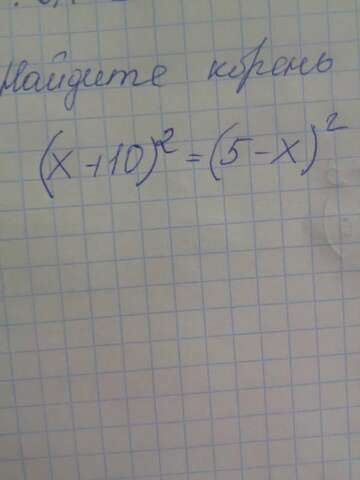 Найдите корень
(x+10)² = (5-x)²